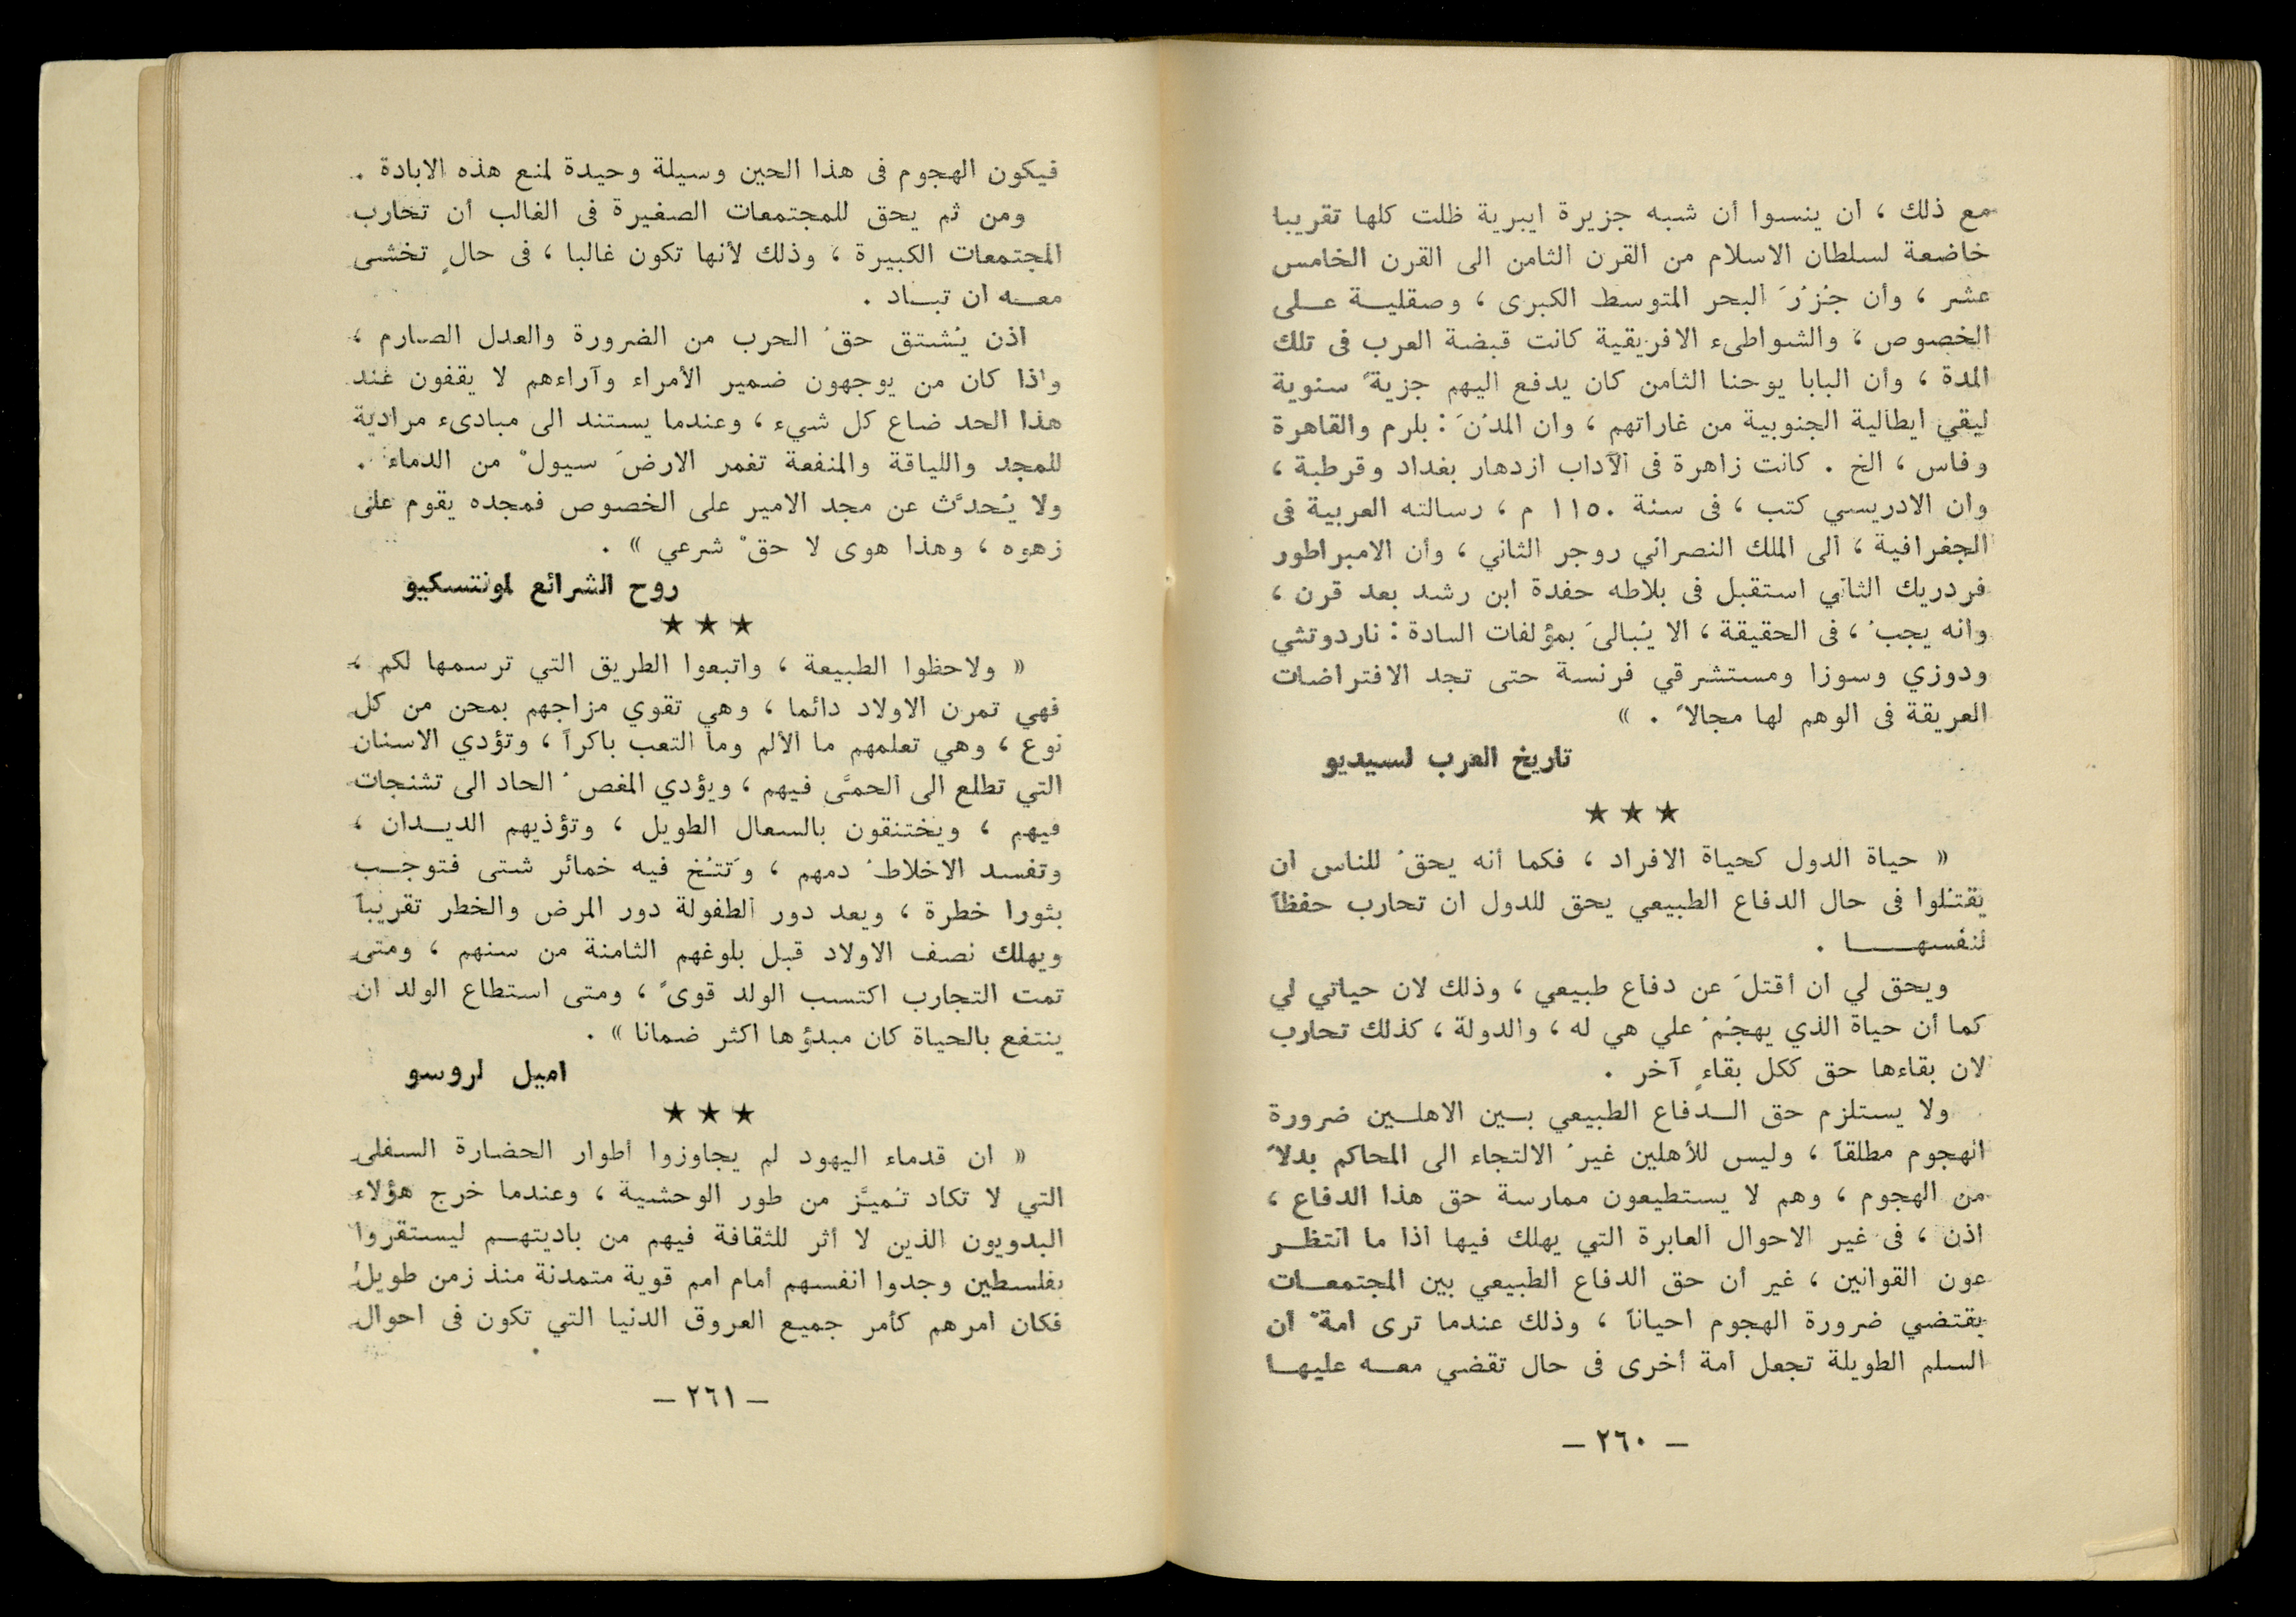 مع ذلك ، ان ينسوا أن شبه جزيرة ايبرية ظلت كلها تقريبا
خاضعة لسلطان الاسلام من القرن الثامن الى القرن الخامس
عشر ، وأن جُزُرَ البحر المتوسط الكبرى ، وصقليـــة عـــلى
الخصوص ، والشواطىء الافريقية كانت قبضة العرب فى تلك
المدة ، وأن البابا يوحنا الثامن كان يدفع اليهم جزيةً سنوية
ليقي ايطالية الجنوبية من غاراتهم ، وان المدُنَ : بلرم والقاهرة
وفاس ، الخ . كانت زاهرة فى الآداب ازدهار بغداد وقرطبة ،
وان الادريسي كتب ، فى سنة ١١٥٠ م ، رسالته العربية فى
الجغرافية ، الى الملك النصراني روجر الثاني ، وأن الامبراطور
فردريك الثاني استقبل فى بلاطه حفدة ابن رشد بعد قرن ،
وانه يجبُ ، فى الحقيقة ، الا يُبالىَ بمؤلفات السادة : ناردوتشي
ودوزي وسوزا ومستشرقي فرنسة حتى تجد الافتراضات
العريقة فى الوهم لها مجالاً . »
تاريخ العرب لسيديو
★ ★ ★
« حياة الدول كحياة الافراد ، فكما أنه يحقُ للناس ان
يقتلوا فى حال الدفاع الطبيعي يحق للدول ان تحارب حفظاً
لنفسهـــا .
ويحق لي ان أقتلَ عن دفاع طبيعي ، وذلك لان حياتي لي
كما أن حياة الذي يهجُمُ علي هي له ، والدولة ، كذلك تحارب
لان بقاءها حق ككل بقاءٍ آخر .
ولا يستلزم حق الـــدفاع الطبيعي بـــين الاهلـــين ضرورة
الهجوم مطلقاً ، وليس للأهلين غيرُ الالتجاء الى المحاكم بدلاً
من الهجوم ، وهم لا يستطيعون ممارسة حق هذا الدفاع ،
اذن ، فى غير الاحوال العابرة التي يهلك فيها اذا ما انتظـــر
عون القوانين ، غير أن حق الدفاع الطبيعي بين المجتمعـــات
يقتضي ضرورة الهجوم احياناً ، وذلك عندما ترى امةٌ ان
السلم الطويلة تجعل امة أخرى فى حال تقضي معـــه عليهـــا
— ٢٦٠ —
فيكون الهجوم فى هذا الحين وسيلة وحيدة لمنع هذه الابادة .
ومن ثم يحق للمجتمعات الصغيرة فى الغالب أن تحارب
المجتمعات الكبيرة ، وذلك لأنها تكون غالبا ، فى حالٍ تخشى
معـــه ان تبـــاد .
اذن يُشتق حقُ الحرب من الضرورة والعدل الصارم ،
واذا كان من يوجهون ضمير الأمراء وآراءهم لا يقفون عند
هذا الحد ضاع كل شيء ، وعندما يستند الى مبادىء مرادية
للمجد واللياقة والمنفعة تغمر الارضَ سيولٌ من الدماء .
ولا يُحدَّث عن مجد الامير على الخصوص فمجده يقوم على
زهوه ، وهذا هوى لا حقٌ شرعي » .
روح الشرائع لمونتسكيو
★ ★ ★
« ولاحظوا الطبيعة ، واتبعوا الطريق التي ترسمها لكم ،
فهي تمرن الاولاد دائما ، وهي تقوي مزاجهم بمحن من كل
نوع ، وهي تعلمهم ما الألم وما التعب باكراً ، وتؤدي الاسنان
التي تطلع الى الحمَّى فيهم ، ويؤدي المغصُ الحاد الى تشنجات
فيهم ، ويختنقون بالسعال الطويل ، وتؤذيهم الديـــدان ،
وتفسد الاخلاطُ دمهم ، وَتنُخ فيه خمائر شتى فتوجـــب
بثورا خطرة ، ويعد دور الطفولة دور المرض والخطر تقريباً
ويهلك نصف الاولاد قبل بلوغهم الثامنة من سنهم ، ومتى
تمت التجارب اكتسب الولد قوىً ، ومتى استطاع الولد ان
ينتفع بالحياة كان مبدؤها اكثر ضمانا » .
اميل لروسو
★ ★ ★
« ان قدماء اليهود لم يجاوزوا أطوار الحضارة السفلى
التي لا تكاد تُميَّز من طور الوحشية ، وعندما خرج هؤلاء
البدويون الذين لا أثر للثقافة فيهم من باديتهـــم ليستقروا
بفلسطين وجدوا انفسهم أمام امم قوية متمدنة منذ زمن طويل
فكان امرهم كأمر جميع العروق الدنيا التي تكون فى احوال
— ٢٦١ —